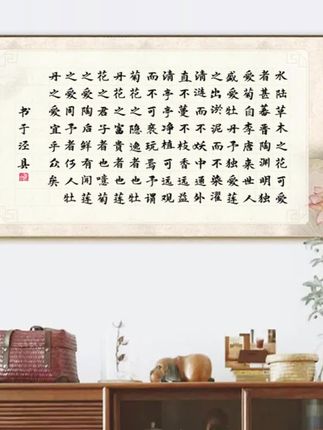 水陆草木之花可爱
者甚蕃晋陶渊明独
爱菊自李唐来世人
盛爱牡丹予独爱莲
之出淤泥而不染濯
清涟而不妖中通外
直不蔓不枝香远益
清亭亭净植可远观
而不可亵玩焉予谓
菊花之隐逸者也牡
丹花之富貴者也莲
花之君子者也噫菊
之爱陶后鲜有闻莲
之爱同予者何人牡
丹之爱宜乎众矣
书于泾县